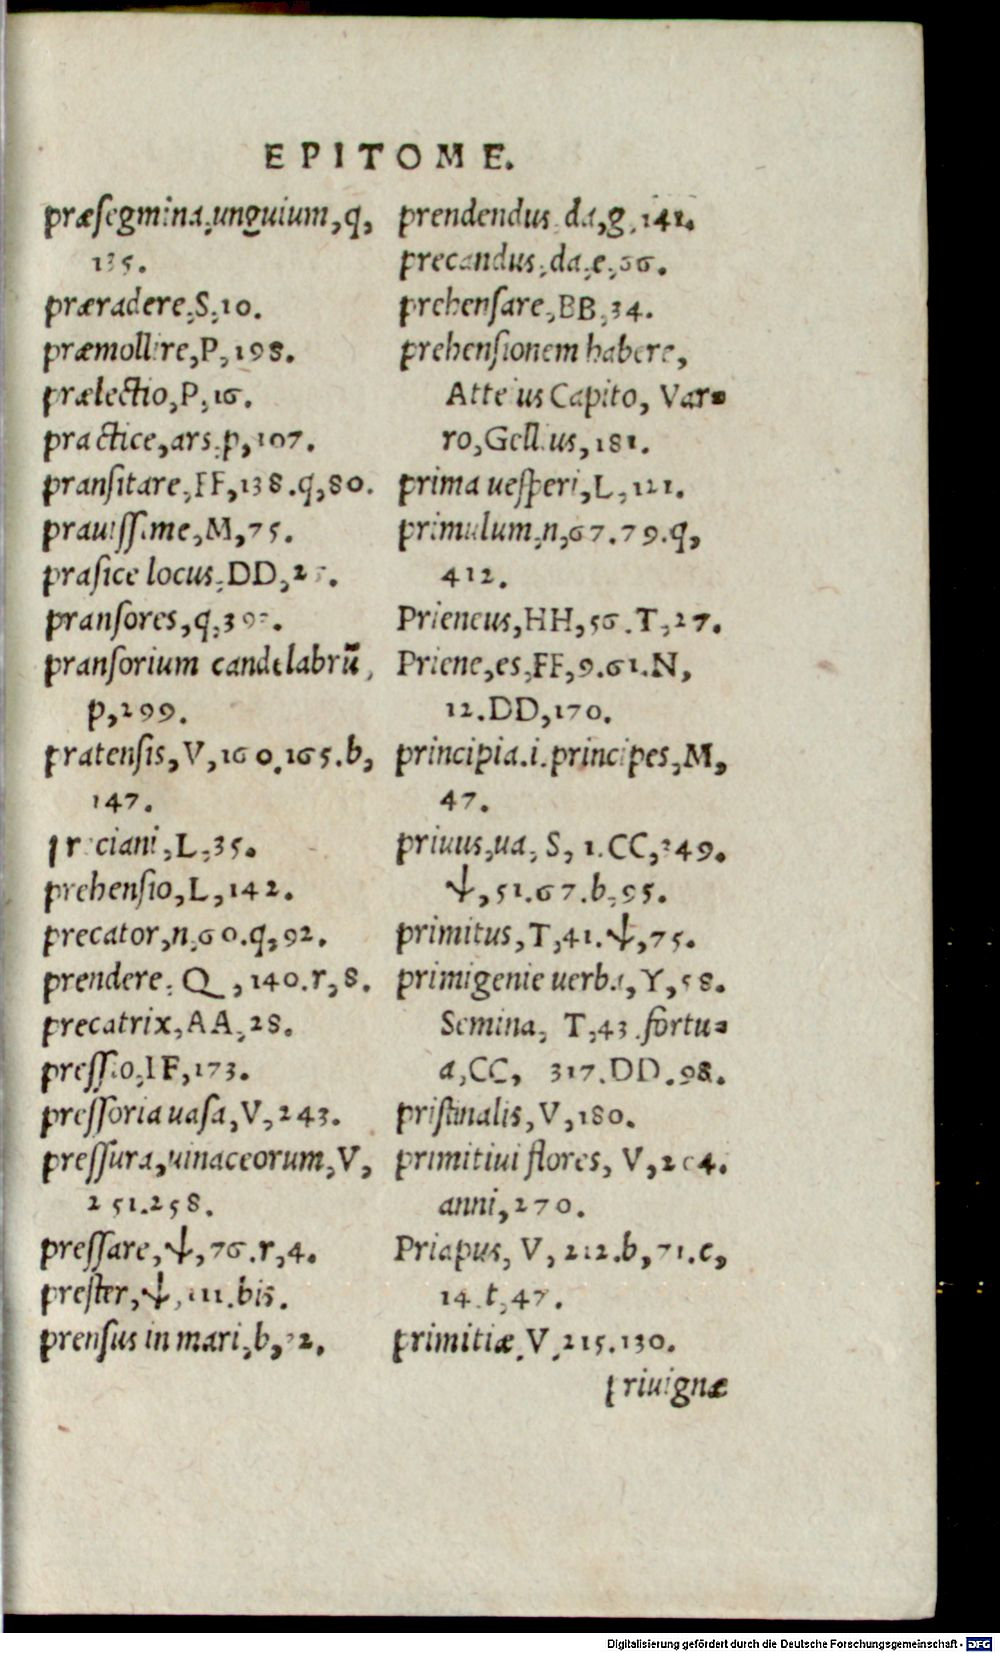 EPITOME.
præſegmina,unguium,q,
135.
præradere,S,10.
præmollire,P,198.
prælectio,P,16.
practice,ars,p,107.
pranſitare,FF,138.q,80.
prauiſſime,M,75.
praſice locus,DD,
pranſores,q,
pranſorium candelabrū,
p,299.
pratensis,V,160.165.b,
147.
preciani,L,35.
prehenſio,L,142.
precator,n,60.q,92.
prendere, Q, 140.r,8.
precatrix,AA,28.
preſſio,FF,173.
preſſoria uaſa,V,243.
preſſura,uinaceorum,V,
251.258.
preſſare,ψ,76.r,4.
preſter,ψ,111.bis.
prenſus in mari,b,
prendendus,da,g,141.
precandus,da,e,66.
prehenſare,BB,34.
prehenſionem habere,
Atteius Capito, Var-
ro,Gellius,181.
prima ueſperi,L,121.
primulum,n,67.79.q,
412.
Prieneus,HH,56.T,27.
Priene,es,FF,9.61.N,
12.DD,170.
principia.i.principes,M,
47.
priuus,ua, S, 1.CC,249.
ψ,51.67.b,95.
primitus,T,41.ψ,75.
primigenie uerba,Y,58.
Semina, T,43.fortu-
a,CC, 317.DD.98.
priſtinalis,V,180.
primitiui flores, V,204.
anni,270.
Priapus, V,212.b,71.c,
14.t,47.
primitiæ,V,215.130.
priuignæ
Digitalisierung gefördert durch die Deutsche Forschungsgemeinschaft - DFG